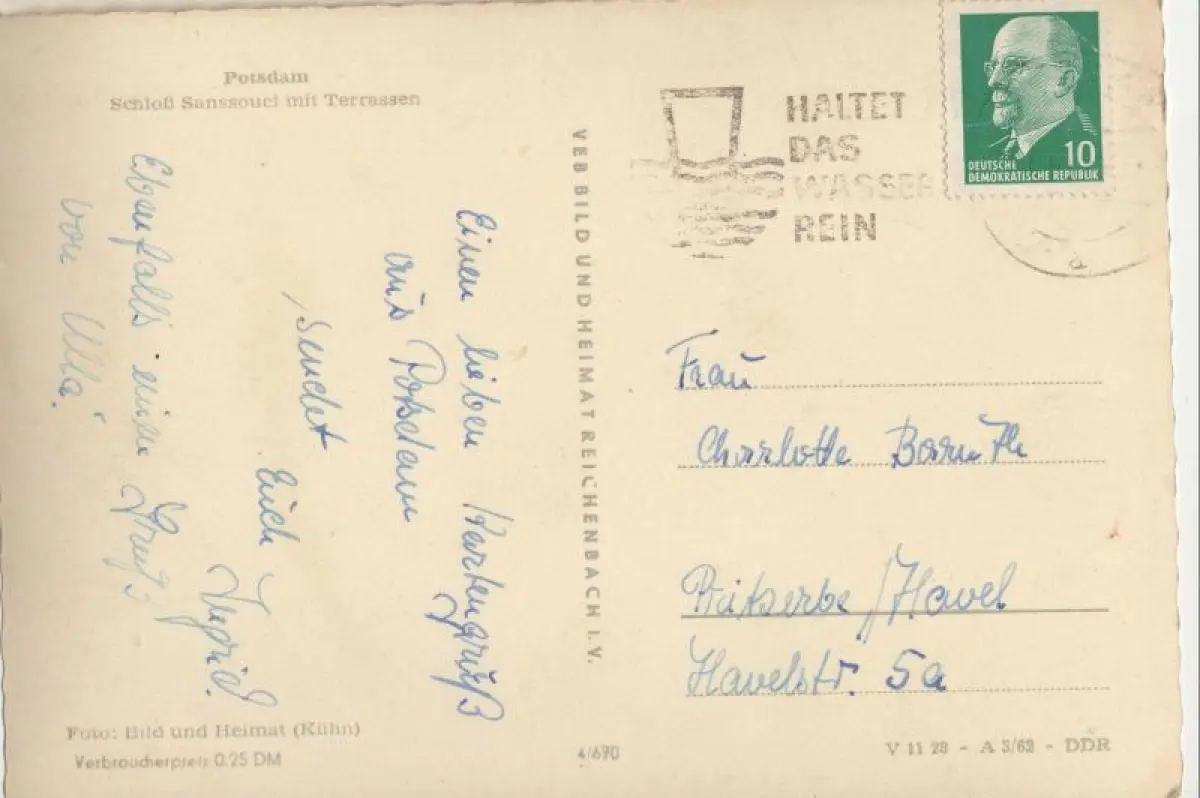 Potsdam
Schloß Sanssouci mit Terrassen
Einen lieben Kartengruß
aus Potsdam
sendet
Euch
Ingrid.
Ebenfalls einen Gruß
von Ulla.
Foto: Bild und Heimat (Kühn)
Verbraucherpreis 0.25 DM
VEB BILD UND HEIMAT REICHENBACH I.V.
4/690
HALTET
DAS
WASSER
REIN
10
DEUTSCHE
DEMOKRATISCHE REPUBLIK
a
Frau
Charlotte Barnth
Pritzerbe/Havel
Havelstr. 5a
V 11 28 - A 3/62 - DDR